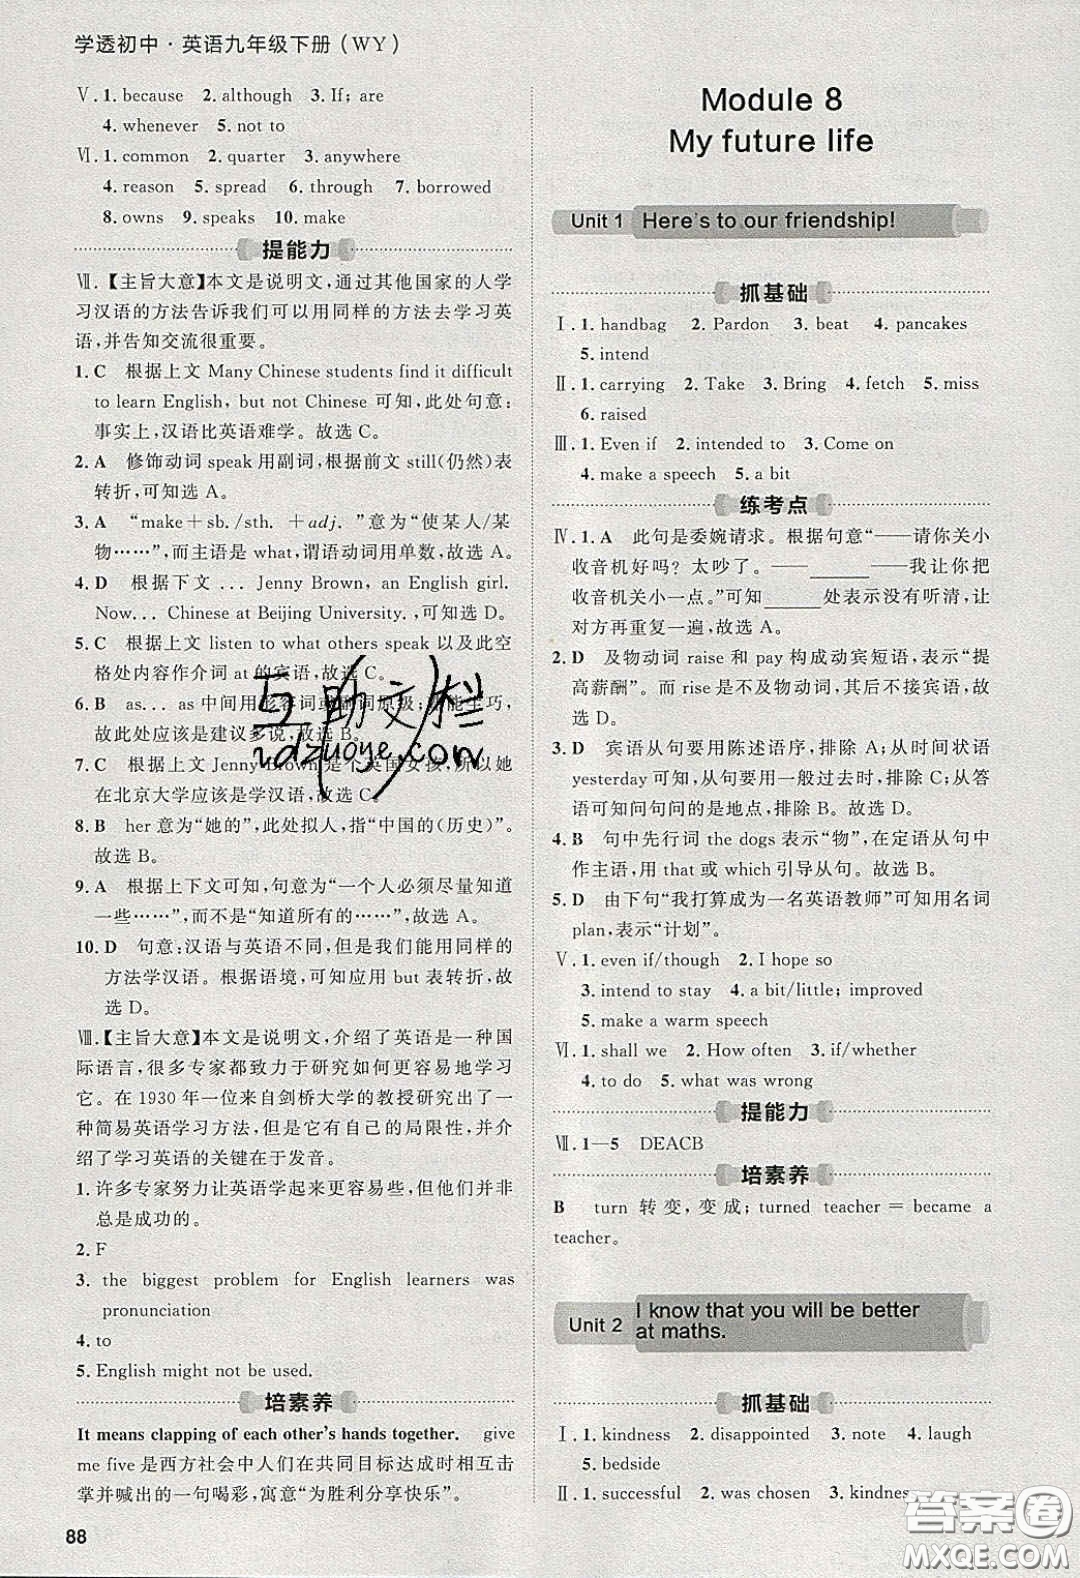 学透初中·英语九年级下册(WY)
Ⅴ. 1. because 2. although 3. If; are
4. whenever 5. not to
Ⅵ. 1. common 2. quarter 3. anywhere
4. reason 5. spread 6. through 7. borrowed
8. owns 9. speaks 10. make
提能力
Ⅶ.【主旨大意】本文是说明文,通过其他国家的人学
习汉语的方法告诉我们可以用同样的方法去学习英
语,并告知交流很重要。
1. C 根据上文 Many Chinese students find it difficult
to learn English, but not Chinese 可知,此处句意:
事实上,汉语比英语难学。故选 C。
2. A 修饰动词 speak 用副词,根据前文 still(仍然)表
转折,可知选 A。
3. A “make+sb./sth. +adj. ”意为“使某人/某
物……”,而主语是 what,谓语动词用单数,故选 A。
4. D 根据下文 ... Jenny Brown, an English girl.
Now... Chinese at Beijing University. ,可知选 D。
5. C 根据上文 listen to what others speak 以及此空
格处内容作介词 at 的宾语,故选 C。
6. B as... as 中间用形容词或副词原级,熟能生巧,
故此处应该是建议多说,故选 B。
7. C 根据上文 Jenny Brown 是个英国女孩,所以她
在北京大学应该是学汉语,故选 C。
8. B her 意为“她的”,此处拟人,指“中国的(历史)”。
故选 B。
9. A 根据上下文可知,句意为“一个人必须尽量知道
一些……”,而不是“知道所有的……”,故选 A。
10. D 句意:汉语与英语不同,但是我们能用同样的
方法学汉语。根据语境,可知应用 but 表转折,故
选 D。
Ⅷ.【主旨大意】本文是说明文,介绍了英语是一种国
际语言,很多专家都致力于研究如何更容易地学习它。
在 1930 年一位来自剑桥大学的教授研究出了一
种简易英语学习方法,但它有自己的局限性,并介
绍了学习英语的关键在于发音。
1. 许多专家努力让英语学起来更容易些,但他们并非
总是成功的。
2. F
3. the biggest problem for English learners was
pronunciation
4. to
5. English might not be used.
培素养
It means clapping of each other's hands together. give
me five 是西方社会中人们在共同目标达成时相互击
掌并喊出的一句喝彩,寓意“为胜利分享快乐”。
88
Module 8
My future life
Unit 1 Here's to our friendship!
抓基础
Ⅰ. 1. handbag 2. Pardon 3. beat 4. pancakes
5. intend
Ⅱ. 1. carrying 2. Take 3. Bring 4. fetch 5. miss
6. raised
Ⅲ. 1. Even if 2. intended to 3. Come on
4. make a speech 5. a bit
练考点
Ⅳ. 1. A 此句是委婉请求。根据句意“——请你关小
收音机好吗? 太吵了。——______——我让你把
收音机关小一点。”可知______处表示没有听清,让
对方再重复一遍,故选 A。
2. D 及物动词 raise 和 pay 构成动宾短语,表示“提
高薪酬”。而 rise 是不及物动词,其后不接宾语,故
选 D。
3. D 宾语从句要用陈述语序,排除 A;从时间状语
yesterday 可知,从句要用一般过去时,排除 C;从答
语可知问句问的是地点,排除 B。故选 D。
4. B 句中先行词 the dogs 表示“物”,在定语从句中
作主语,用 that 或 which 引导从句。故选 B。
5. D 由下句“我打算成为一名英语教师”可知用名词
plan,表示“计划”。
Ⅴ. 1. even if/though 2. I hope so
3. intend to stay 4. a bit/little; improved
5. make a warm speech
Ⅵ. 1. shall we 2. How often 3. if/whether
4. to do 5. what was wrong
提能力
Ⅶ. 1—5 DEACB
培素养
B turn 转变,变成; turned teacher = became a
teacher。
Unit 2 I know that you will be better
at maths.
抓基础
Ⅰ. 1. kindness 2. disappointed 3. note 4. laugh
5. bedside
Ⅱ. 1. successful 2. was chosen 3. kindness
互助文栏
答案圈
MXQE.COM